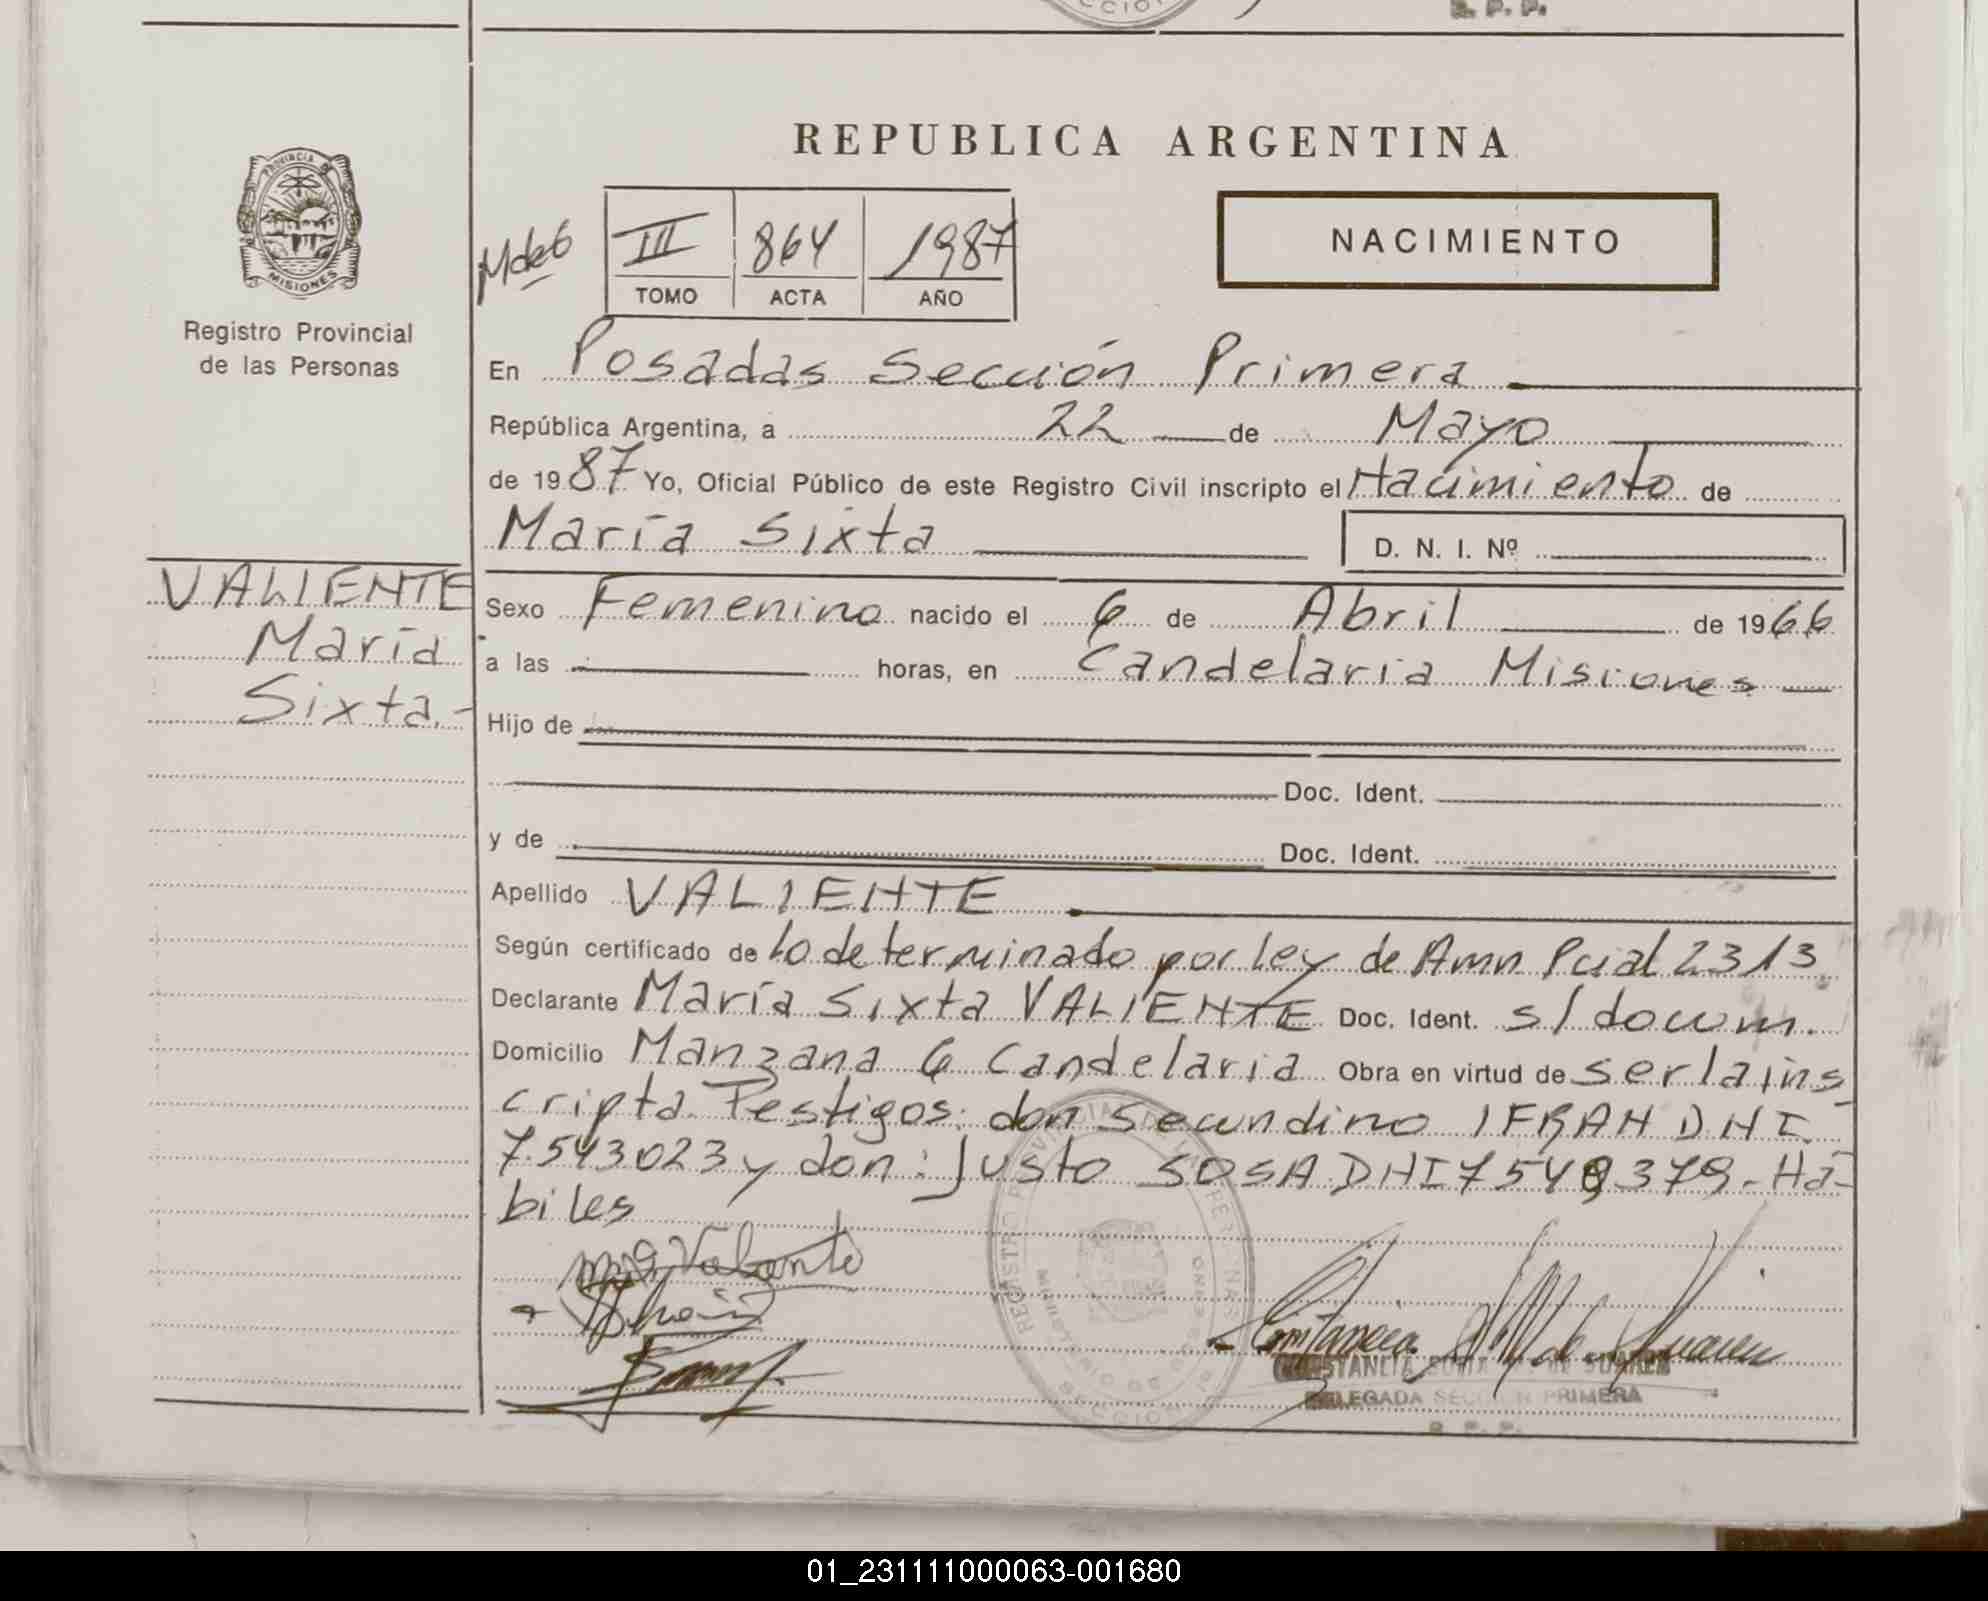 REPUBLICA ARGENTINA
PROVINCIA DE MISIONES
Registro Provincial
de las Personas
III 864 1987
TOMO ACTA AÑO
NACIMIENTO
En Posadas Sección Primera
República Argentina, a 22 de Mayo
de 1987 Yo, Oficial Público de este Registro Civil inscripto el Nacimiento de
María Sixta D. N. I. Nº
VALIENTE
María
Sixta.-
Sexo Femenino nacido el 6 de Abril de 1966
a las horas, en Candelaria Misiones
Hijo de
Doc. Ident.
y de Doc. Ident.
Apellido VALIENTE
Según certificado de lo determinado por Ley de Amn Pcial 2313
Declarante María Sixta VALIENTE Doc. Ident. s/docum.
Domicilio Manzana 6 Candelaria Obra en virtud de ser la ins
cripta. Testigos: don Secundino IFRAN DNI
7.543023 y don: Justo SOSA DNI 7549379. Há-
biles
DELEGADA SECCION PRIMERA
R. P. P.
01_231111000063-001680